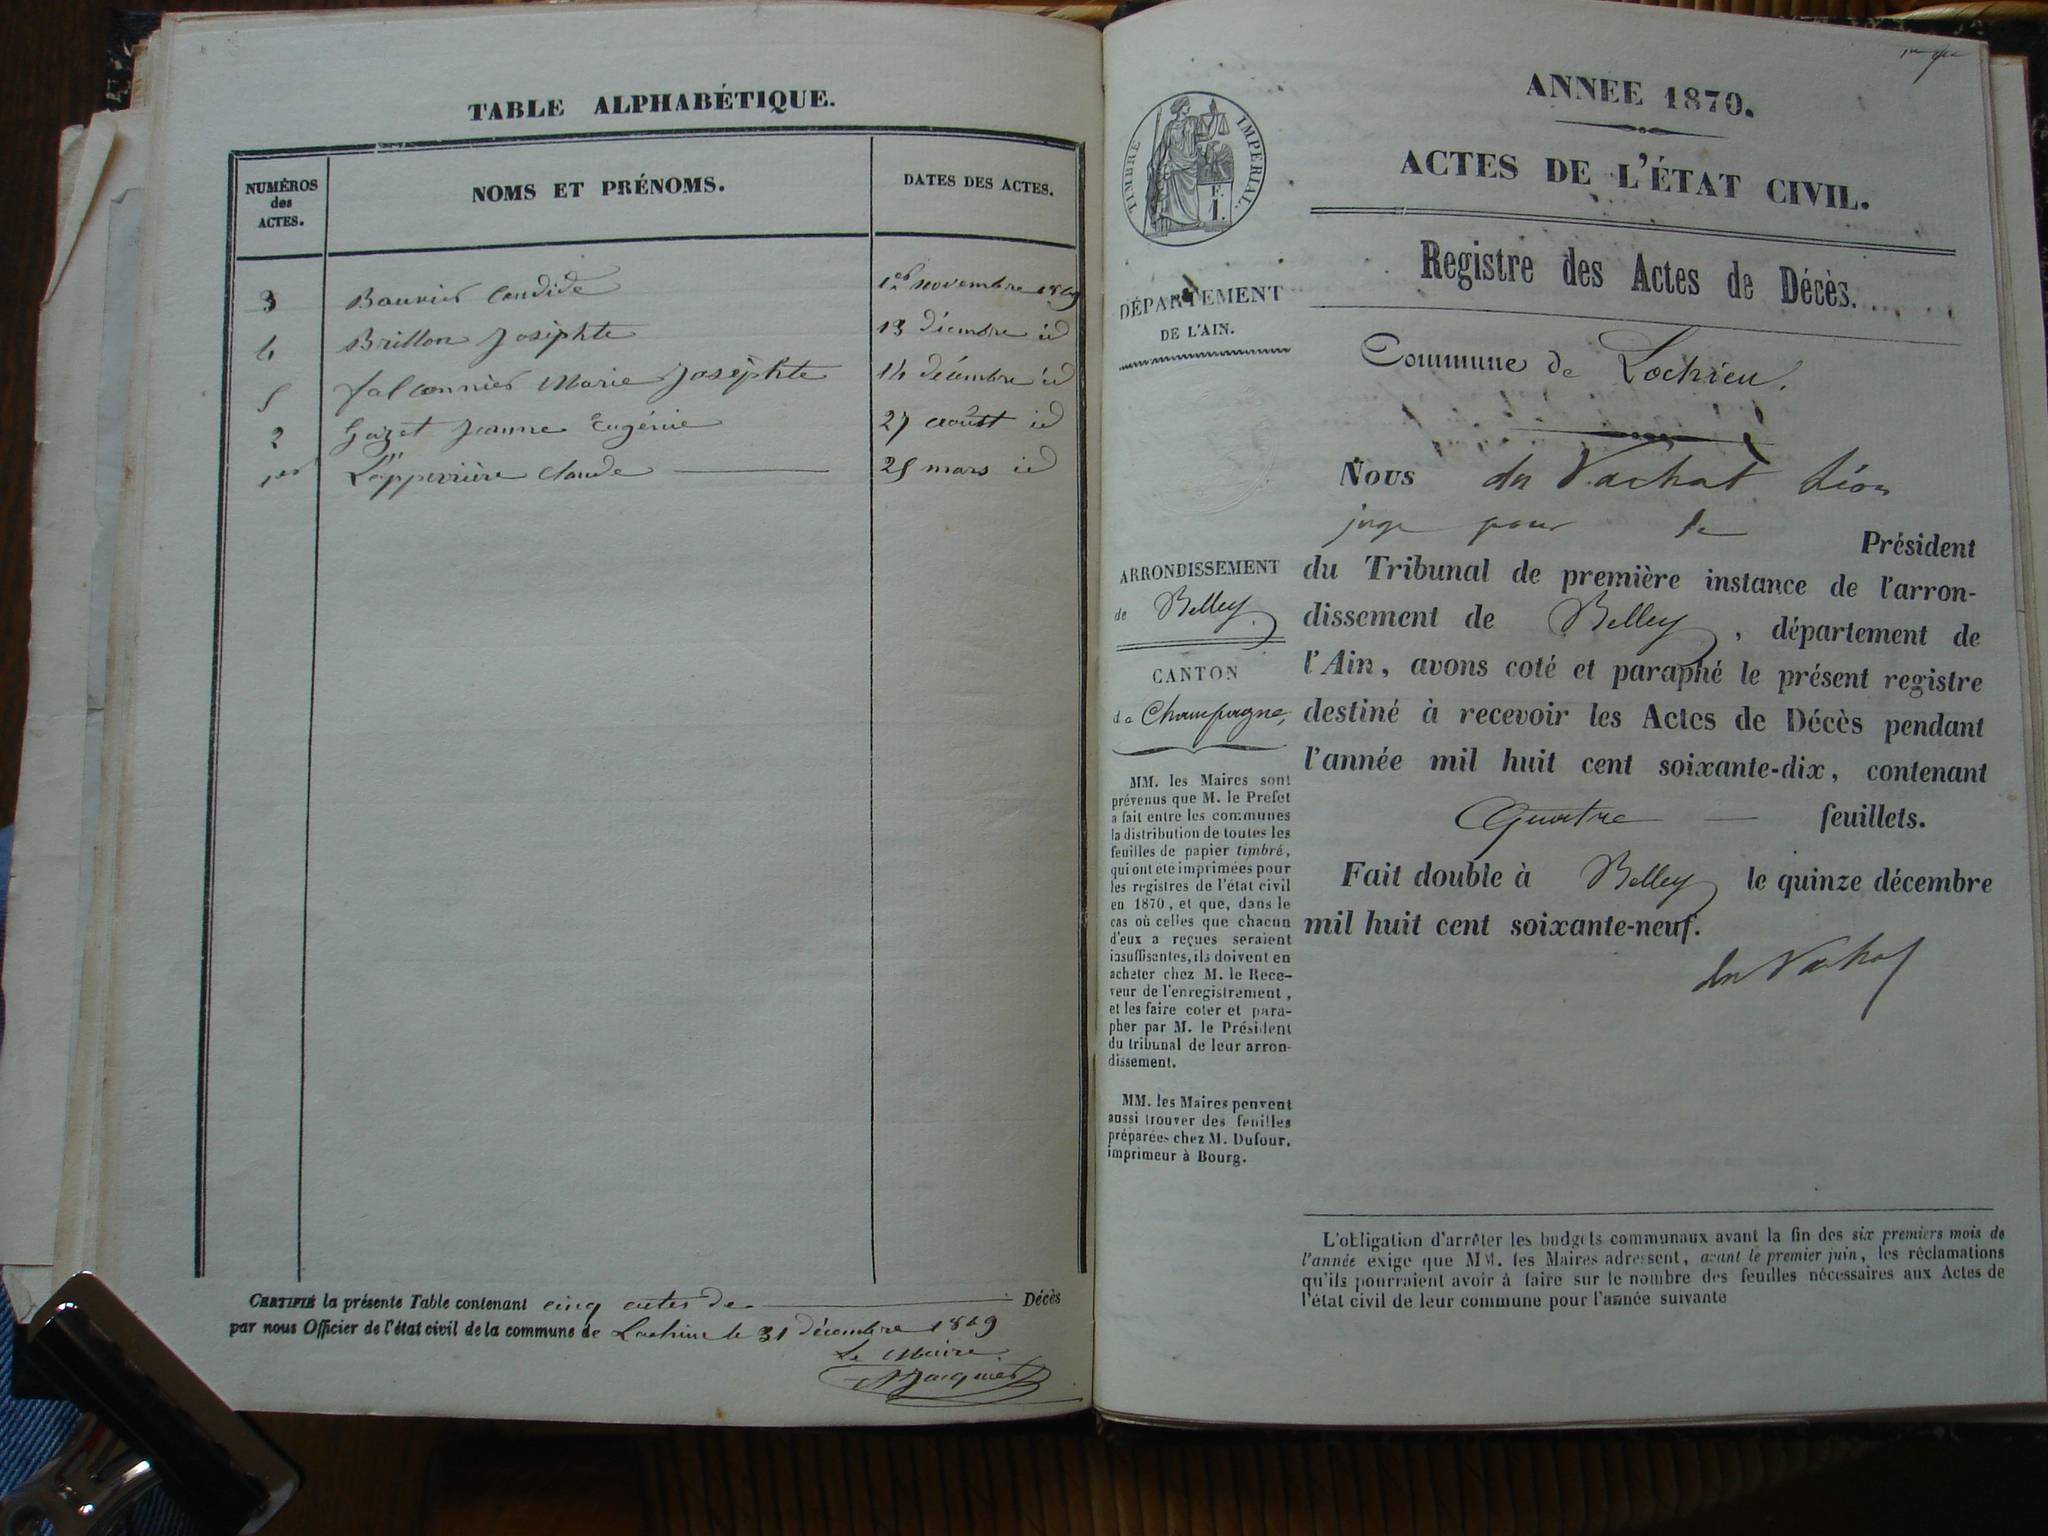 TABLE ALPHABÉTIQUE.
NUMÉROS des ACTES. NOMS ET PRÉNOMS. DATES DES ACTES.
3 Candide 1er novembre 1869
4 Brillon Josephte 13 décembre id
5 Falconnier Marie Josephte 14 décembre id
2 Gozet Jeanne Eugénie 27 août id
1er Lapperrière Claude 25 mars id
CERTIFIÉ la présente Table contenant cinq actes de Décès
par nous Officier de l'état civil de la commune de Lochieu le 31 décembre 1869
Le Maire
ANNÉE 1870.
ACTES DE L'ÉTAT CIVIL.
TIMBRE IMPÉRIAL.
F.
1.
Registre des Actes de Décès.
DÉPARTEMENT
DE L'AIN.
Commune de Lochieu.
Nous du Vachat Léon
juge pour le Président
du Tribunal de première instance de l'arron-
dissement de Belley, département de
l'Ain, avons coté et paraphé le présent registre
destiné à recevoir les Actes de Décès pendant
l'année mil huit cent soixante-dix, contenant
Quatre feuillets.
Fait double à Belley le quinze décembre
mil huit cent soixante-neuf.
du Vachat
ARRONDISSEMENT
de Belley.
CANTON
de Champagne,
MM. les Maires sont
prévenus que M. le Préfet
a fait entre les communes
la distribution de toutes les
feuilles de papier timbré,
qui ont été imprimées pour
les registres de l'état civil
en 1870, et que, dans le
cas où celles que chacun
d'eux a reçues seraient
insuffisantes, ils doivent en
acheter chez M. le Rece-
veur de l'enregistrement,
et les faire coter et para-
pher par M. le Président
du tribunal de leur arron-
dissement.
MM. les Maires peuvent
aussi trouver des feuilles
préparées chez M. Dufour,
imprimeur à Bourg.
L'obligation d'arrêter les budgets communaux avant la fin des six premiers mois de
l'année exige que MM. les Maires adressent, avant le premier juin, les réclamations
qu'ils pourraient avoir à faire sur le nombre des feuilles nécessaires aux Actes de
l'état civil de leur commune pour l'année suivante